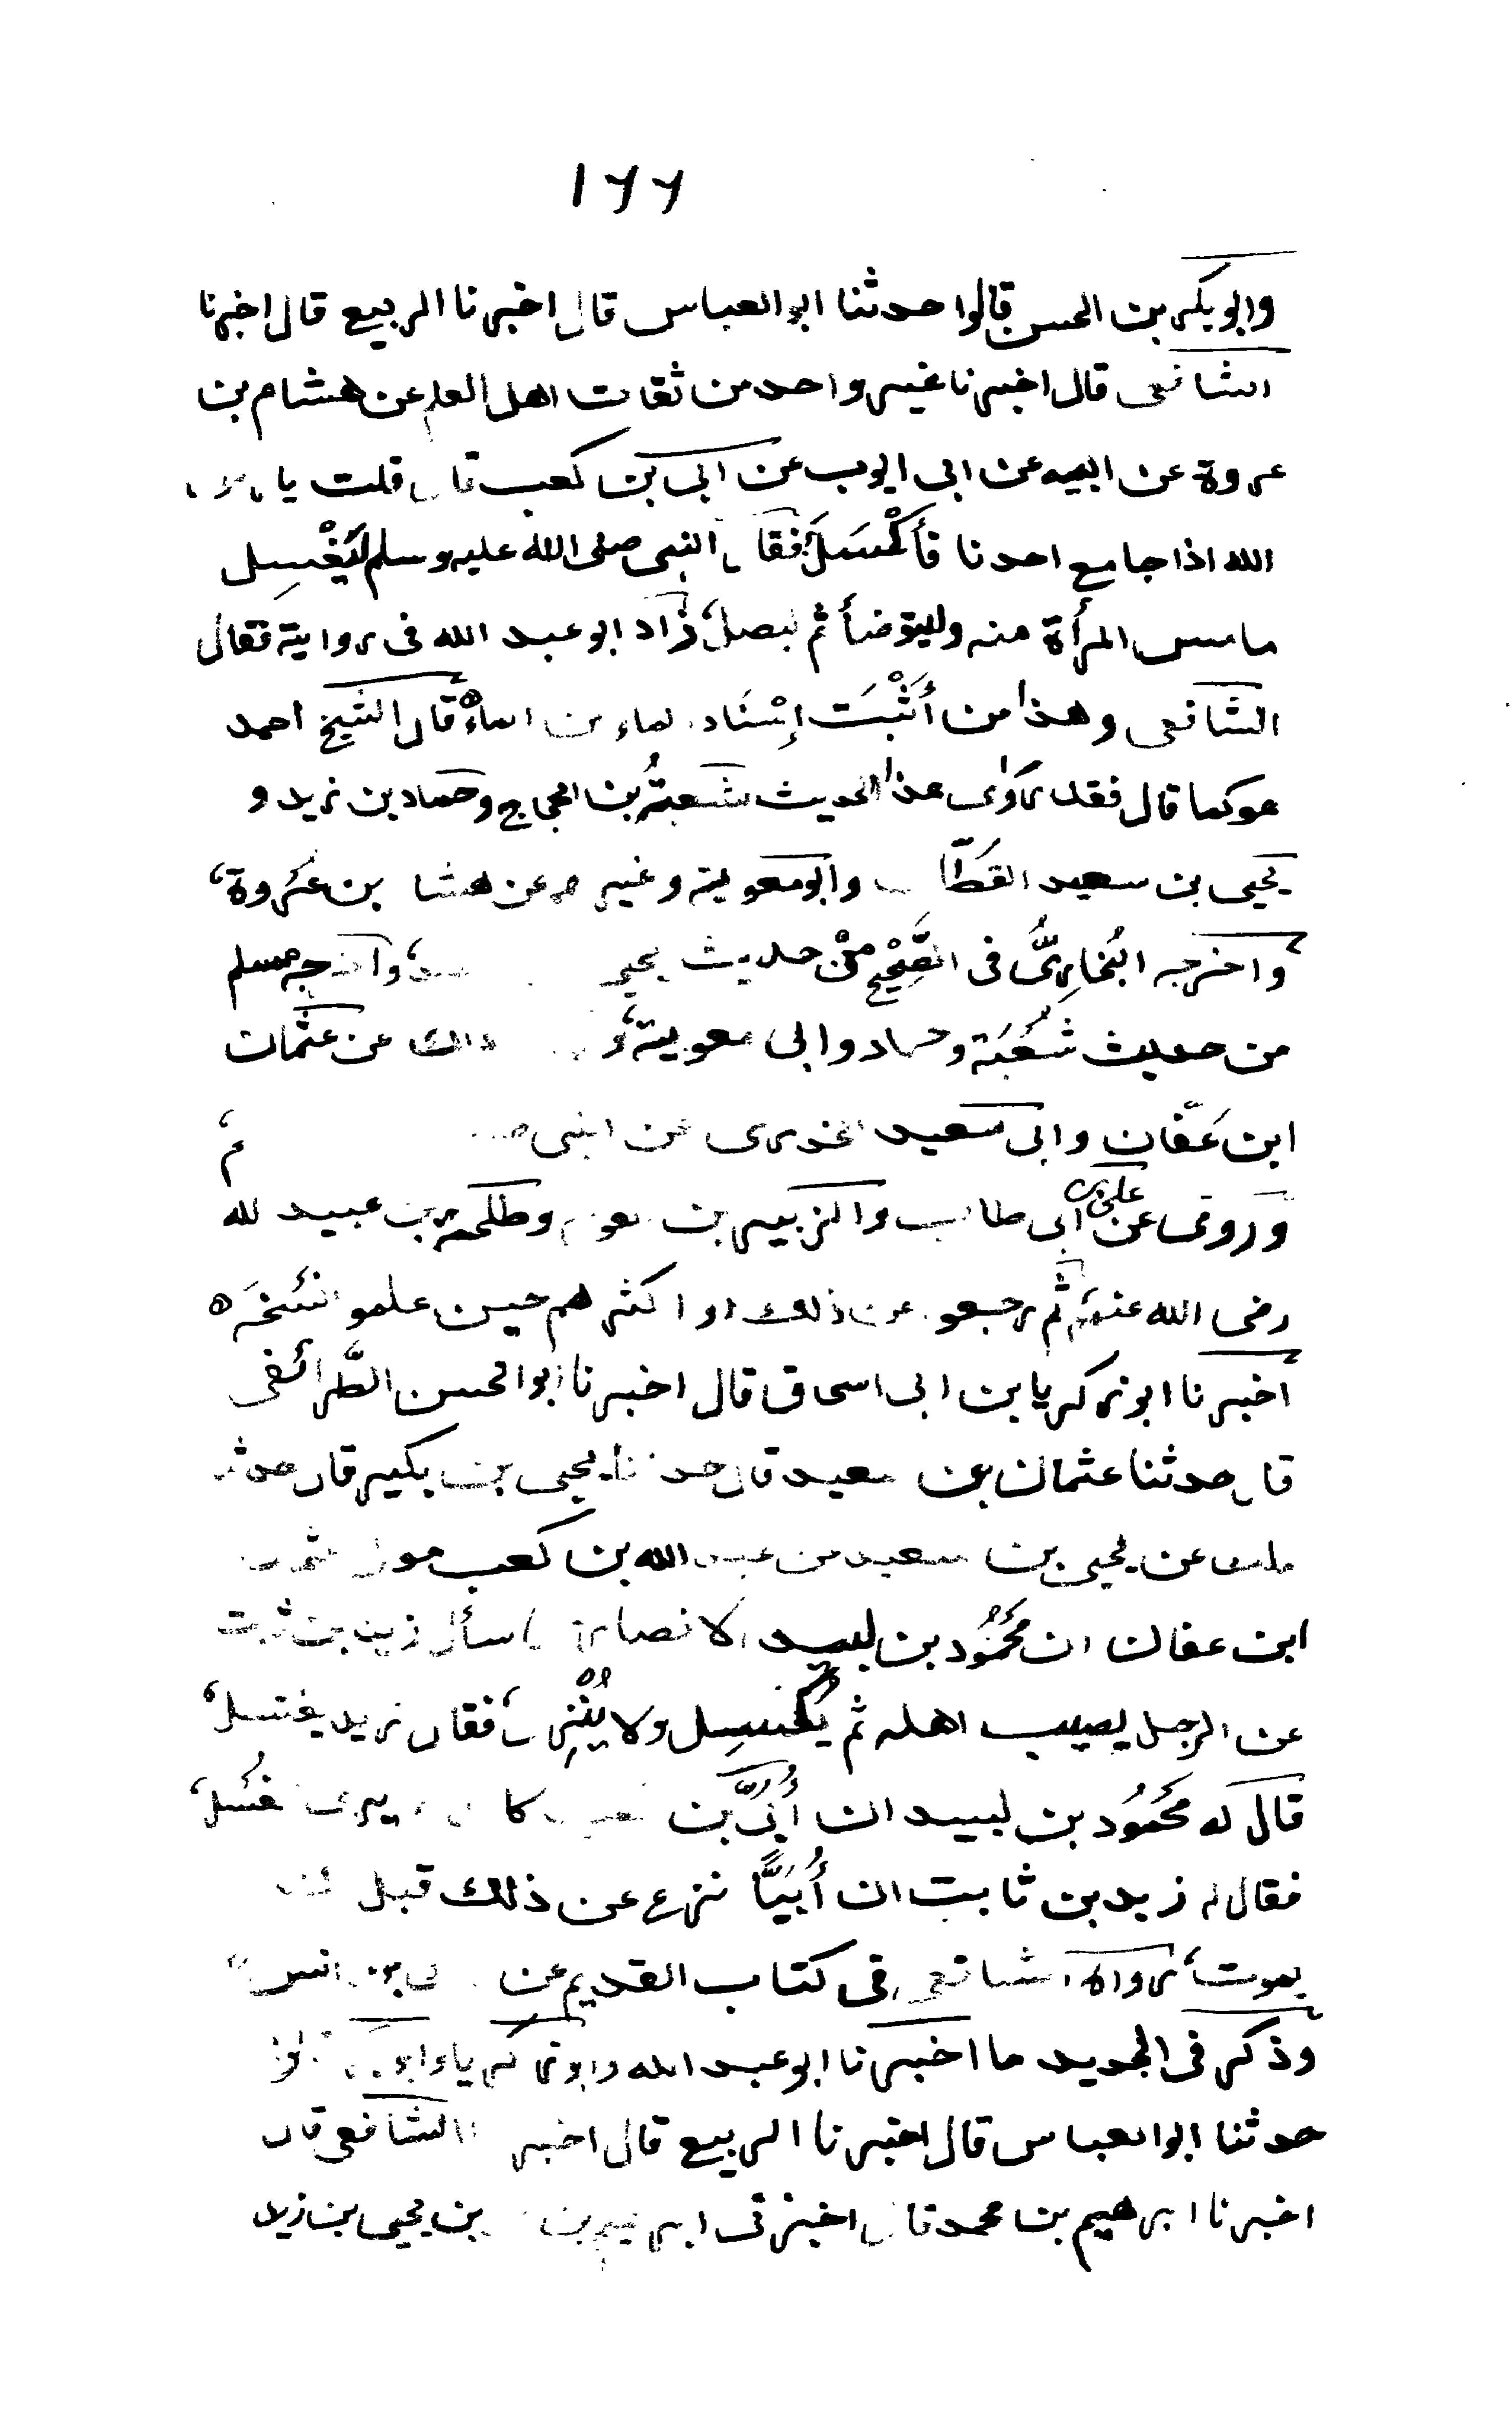 ١٦٦
وابو بكر بن الحسن قالوا حدثنا ابو العباس قال اخبرنا الربيع قال اخبرنا
الشافعى قال اخبرنا غير واحد من ثقات اهل العلم عن هشام بن
عروة عن ابيه عن ابى ايوب عن ابى بن كعب قال قلت يا
الله اذا جامع احدنا فأكْسَلَ فقال النبى صلى الله عليه وسلم ليَغْسِل
ما مس المرأة منه وليتوضأ ثم ليصل، زاد ابو عبد الله فى روايته فقال
الشافعى وهذا من أثْبَت إسْناد قال الشيخ احمد
هو كما قال فقد روى هذا الحديث شعبةُ بن الحجاج وحماد بن زيد و
يحيى بن سعيد القطَّان وابو معوية وغيرهم عن هشام بن عُروة،
واخرجه البُخارِىُّ فى الصَّحِيْحِ مِنْ حديث يحيى واخرجه مسلم
من حديث شُعْبَة وحماد وابى معوية، و ذلك عن عثمان
ابن عَفّان وابى سعيد الخدرى عن النبى
وروى عن على بن ابى طالب والزبير بن العوام وطلحة بن عبيد الله
رضى الله عنهم ثم رجعوا عن ذلك او اكثرهم حين علموا نَسْخَه ٥
اخبرنا ابو زكريا بن ابى اسحاق قال اخبرنا ابو الحسن الطَّرائفى
قال حدثنا عثمان بن سعيد قال حدثنا يحيى بن بكير قال حدثنا
ملك عن يحيى بن سعيد عن عبد الله بن كعب مولى عثمان
ابن عفان ان مَحْمُود بن لبيد الانصارى سأل زيد بن ثابت
عن الرجل يصيب اهله ثم يُكْسِل ولا يُنْزِل، فقال زيد يغتسل،
قال له مَحْمُود بن لبيد ان أُبَىَّ بن كعب كان لا يرى الغُسْل،
فقال له زيد بن ثابت ان أُبَيًّا نزع عن ذلك قبل ان
يموت، رواه الشافعى فى كتاب القديم عن انس
وذكر فى الجديد ما اخبرنا ابو عبد الله وابو زكريا وابو بكر قالوا
حدثنا ابو العباس قال اخبرنا الربيع قال اخبرنا الشافعى قال
اخبرنا ابرهيم بن محمد قال اخبرنى ابرهيم بن بن يحيى بن زيد